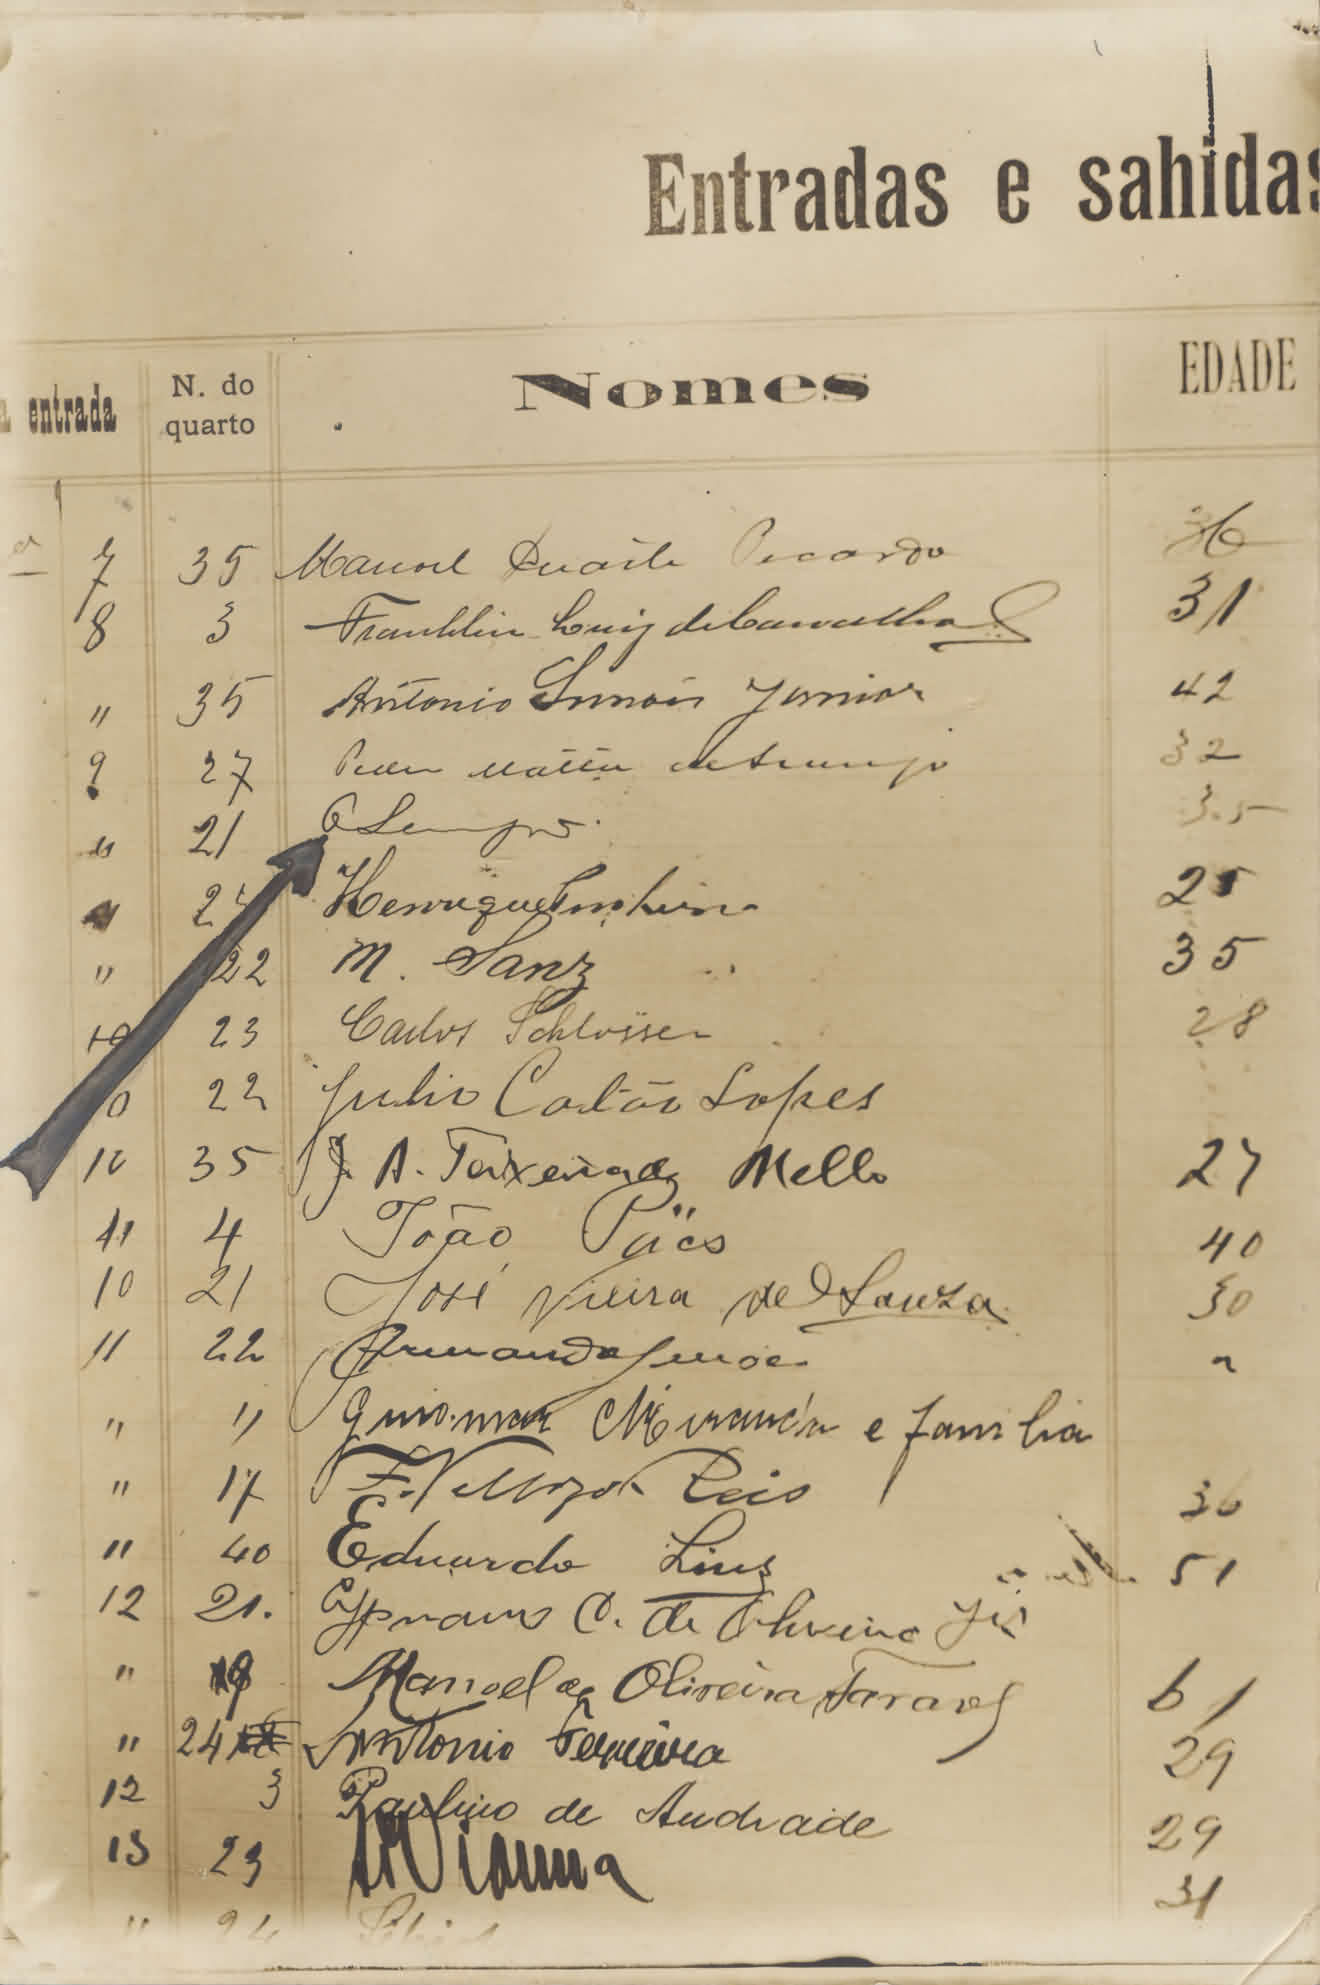 Entradas e sahidas
a entrada N. do quarto Nomes EDADE
7 35 Manoel Duarte Picardo 36
8 3 Franklin Luiz de Carvalho 31
" 35 Antonio Junior 42
9 27 32
" 21 35
" Henrique 25
" 22 M. Sanz 35
10 23 Carlos Schlösser 28
10 22 Julio Cortão Lopes
10 35 J. A. Teixeira de Mello 27
11 4 João Päes 40
10 21 José Vieira de Souza 30
11 22 Armando "
" " Guiomar Miranda e familia
" 17 F. Vellozo Reis 36
" 40 Eduardo Lins 51
12 21. C. de Oliveira
" Manoel de Oliveira Tavares 61
" 24 Antonio Ferreira 29
12 3 Paulino de Andrade 29
13 23 Vianna 31
" 24